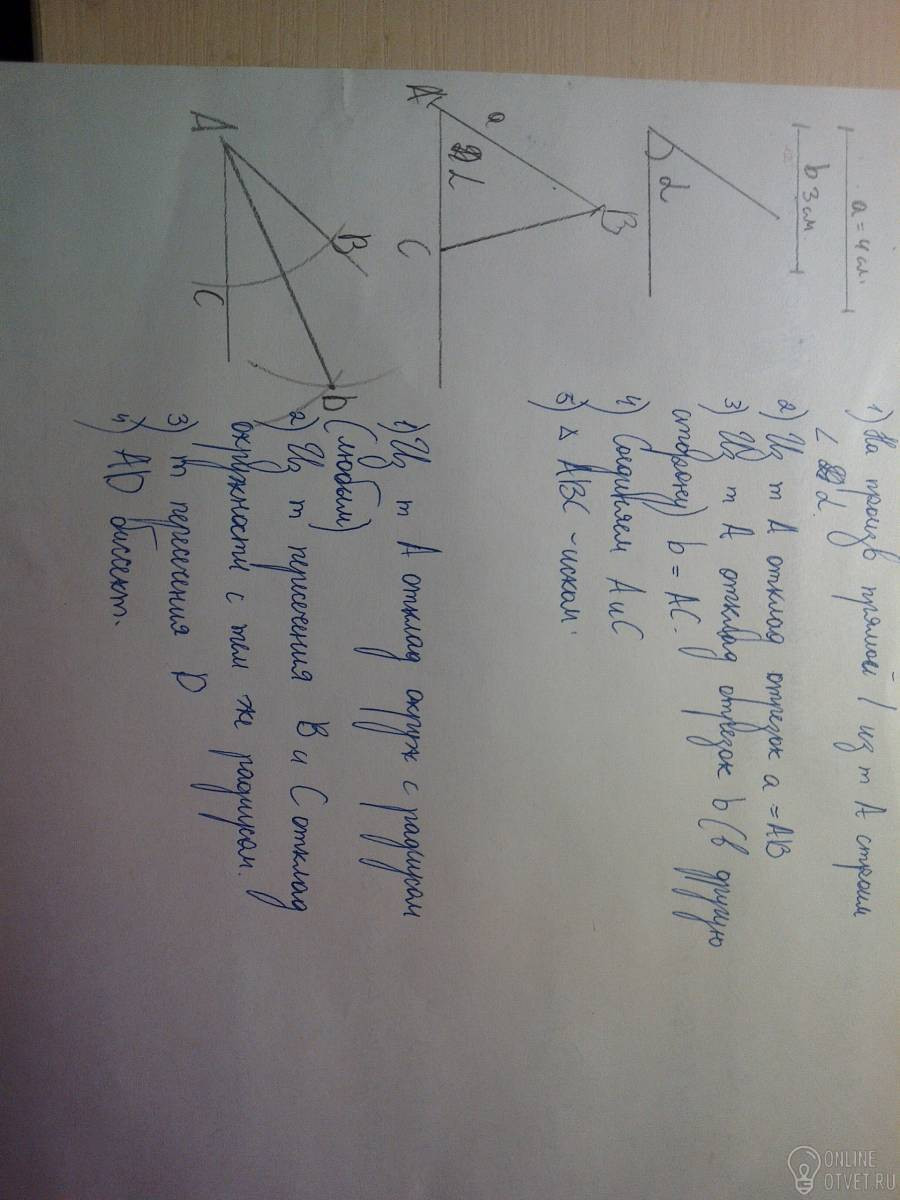 a = 4 см.
b 3 см
L
1) На произв прямой l из т A строим
∠ L
2) Из т A отклад отрезок a = AB
3) Из т A отклад отрезок b (в другую
сторону) b = AC.
4) Соединяем A и C
5) Δ ABC - иском.
A
a
B
L
C
1) Из т A отклад окруж с радиусом
(любым)
2) Из т пересечения B и C отклад
окружности с тем же радиусом.
3 т пересечения D
4) AD биссект.
A
B
C
D
ONLINE
OTVET.RU